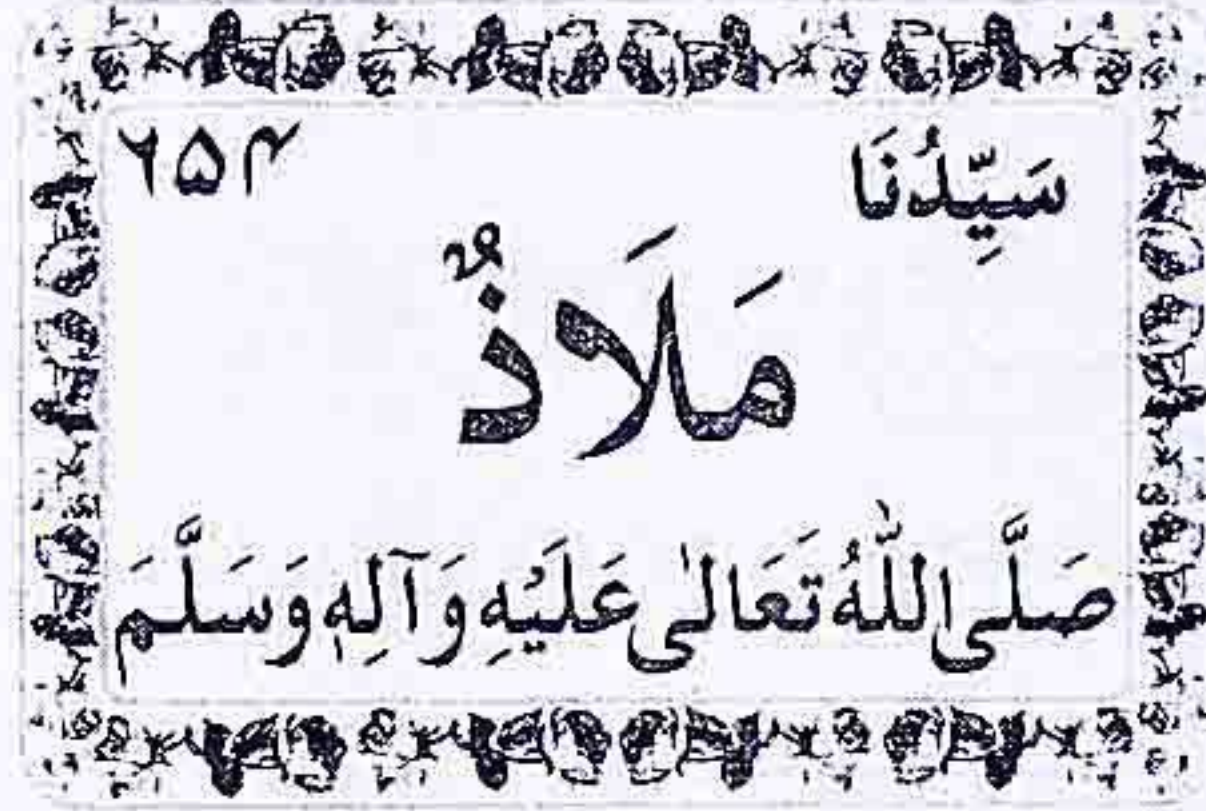 سَيِّدُنَا ۶۵۴
مَلَاذٌ
صَلَّى اللّٰهُ تَعَالٰى عَلَيْهِ وَآلِهٖ وَسَلَّمَ